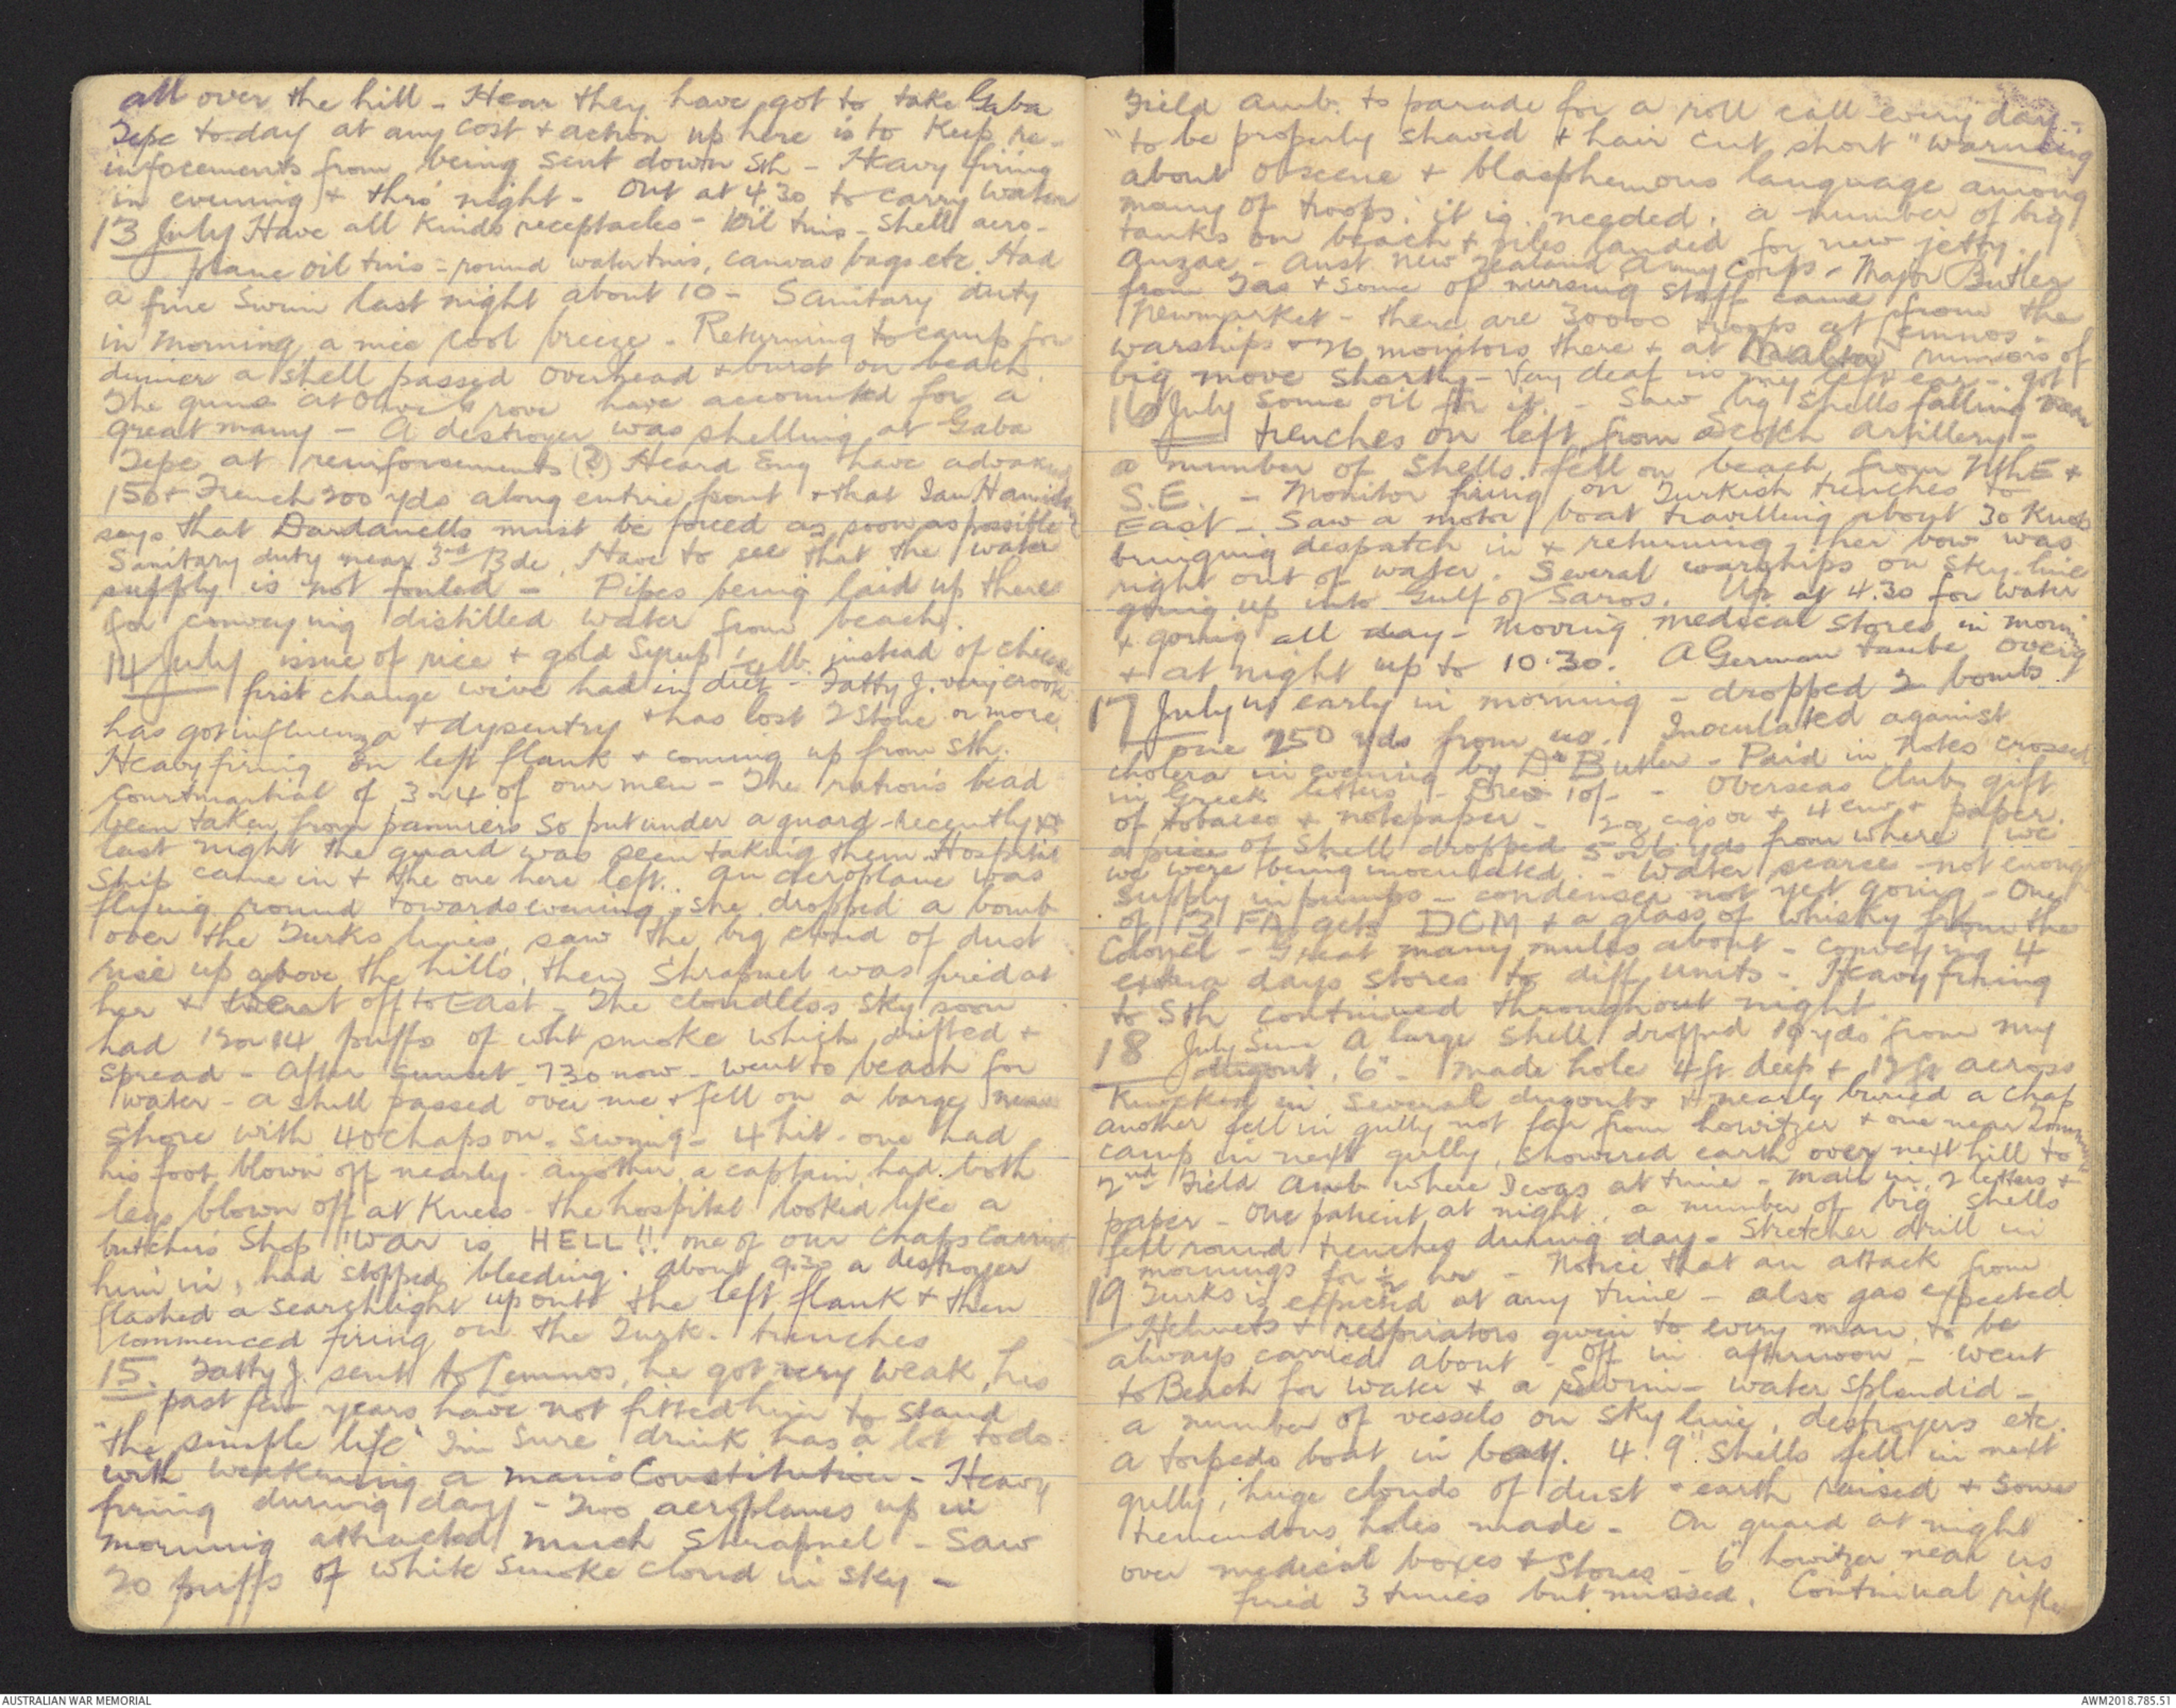 all over the hill - Hear they have got to take Gaba
Tepe to-day at any cost & action up here is to keep re-
infocements from being sent down Sth - Heavy firing
in evening & thro' night - Out at 4.30 to carry water
13 July Have all kinds receptacles - Oil tins - Shell aero-
plane oil tins = round water tins, canvas bags etc. Had
a fine Swim last night about 10 - Sanitary duty
in morning, a nice cool breeze. Returning to camp for
dinner a shell passed overhead & burst on beach.
The guns at Olive Grove have accounted for a
great many - A destroyer was shelling at Gaba
Tepe at reinforsements (?) Heard Eng have advanced
150 & French 200 yds along entire front & that Ian Hamilton
says that Dardanells must be forced as soon as possible
Sanitary duty near 3rd Bde. Have to see that the water
supply is not fouled - Pipes being laid up there
for conveying distilled water from beach.
14 July issue of rice & gold Syrup, instead of cheese
first change we've had in diet - Fatty J. very crook
has got influenza & dysentry & has lost 2 stone or more.
Heavy firing on left flank & coming up from Sth.
Courtmartial of 3 or 4 of our men - The rations had
been taken from panniers so put under a guard - recently
last night the guard was seen taking them. Hospital
Ship came in & the one here left. An aeroplane was
flying round towards evening, she dropped a bomb
over the Turks lines, saw the big cloud of dust
rise up above the hills, then Shrapnel was fired at
her & went off to East - The cloudless sky soon
had 12 or 14 puffs of wht smoke which drifted &
spread - After sunset - 7.30 now - went to beach for
water - a shell passed over me & fell on a barge near
shore with 40 chaps on - Swimg - 4 hit - one had
his foot blown off nearly - another, a captain, had both
legs blown off at knees - the hospital looked like a
butchers Shop "War is HELL"!! one of our chaps carried
him in, had stopped bleeding. About 9.30 a destroyer
flashed a searchlight up onto the left flank & then
commenced firing on the Turk. trenches
15. Fatty J. sent to Lemnos, he got very weak, his
past few years have not fitted him to stand
"the simple life" I'm sure drink has a lot to do
with weakening a mans Constitution - Heavy
firing during day - Two aeroplanes up in
morning attracted much Shrapnel - Saw
20 puffs of white smoke cloud in sky -
Field Amb. to parade for a roll call every day -
"to be properly shaved & hair cut short" warning
about obscene & blasphemous language among
many of troops; it is needed. A number of big
tanks on beach & piles landed for new jetty.
Anzac - Aust. New Zealand Army Corps - Major Butler
from Tas & some of nursing staff came from the
Newmarket - there are 30000 troops at Lemnos.
warships & monitors there & at Malta rumors of
big move shortly - Very deaf in my left ear - got
16 July some oil for it. - Saw big shells falling near
trenches on left from a Scotch artillery -
a number of Shells fell on beach from NthE &
S.E. - Monitor firing on Turkish trenches to
East - Saw a motor boat travelling about 30 knots
bringing despatch in & returning, her bow was
right out of water. Several warships on sky-line
going up into Gulf of Saros. Up at 4.30 for water
& going all day - moving medical stores in morning
& at night up to 10.30. A German taube over
17 July us early in morning - dropped 2 bombs
one 250 yds from us. Inoculated against
cholera in evening by Dr Butler - Paid in Notes crossed
in Greek letters - Drew 10/- - Overseas Club gift
of tobacco & notepaper - 20 cigs or & 4 env + paper.
a piece of shell dropped 5 or 6 yds from where we
we were being inoculated. - Water scarce - not enough
supply in pumps - condenser not yet going - One
of 3 FA gets DCM & a glass of whisky from the
Colonel - Great many mules about - conveying 4
extra days stores to diff units - Heavy firing
to Sth continued throughout night.
18 July Sun A large shell dropped 10 yds from my
dugout, 6" - made hole 4ft deep & 12 ft across
knocked in several dugouts & nearly buried a chap
another fell in gully not far from howitzer & one near
camp in next gully, showered earth over next hill to
2nd Field Amb where I was at time - mail in, 2 letters &
paper - One patient at night, a number of big shells
fell round trenches during day - Stretcher drill in
mornings for ½ hr - Notice that an attack from
19 Turks is expected at any time - also gas expected
Helmets & respirators given to every man, to be
always carried about - Off in afternoon - went
to Beach for water & a swim - water splendid -
a number of vessels on sky line, destroyers etc.
a torpedo boat in bay. 4. 9" shells fell in next
gully, huge clouds of dust & earth raised & some
tremendous holes made - On guard at night
over medical boxes & Stores - 6" howitzer near us
fired 3 times but missed. Continual rifle
AUSTRALIAN WAR MEMORIAL
AWM2018.785.51